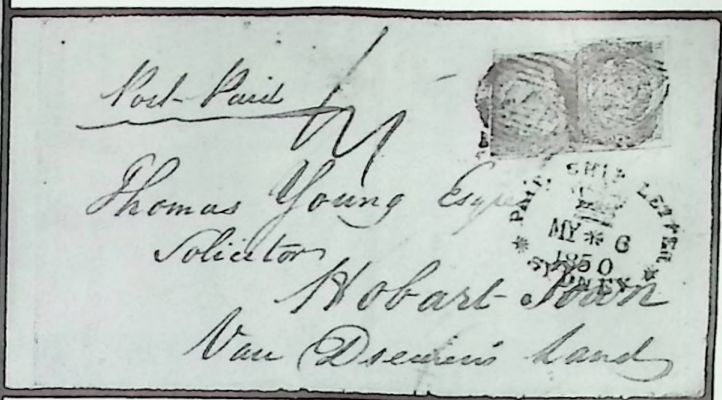 Post-Paid
Thomas Young Esqre
Solicitor
Hobart-Town
Van Diemen's Land
PAID SHIP LETTER
MY * 6
1850
* SYDNEY *